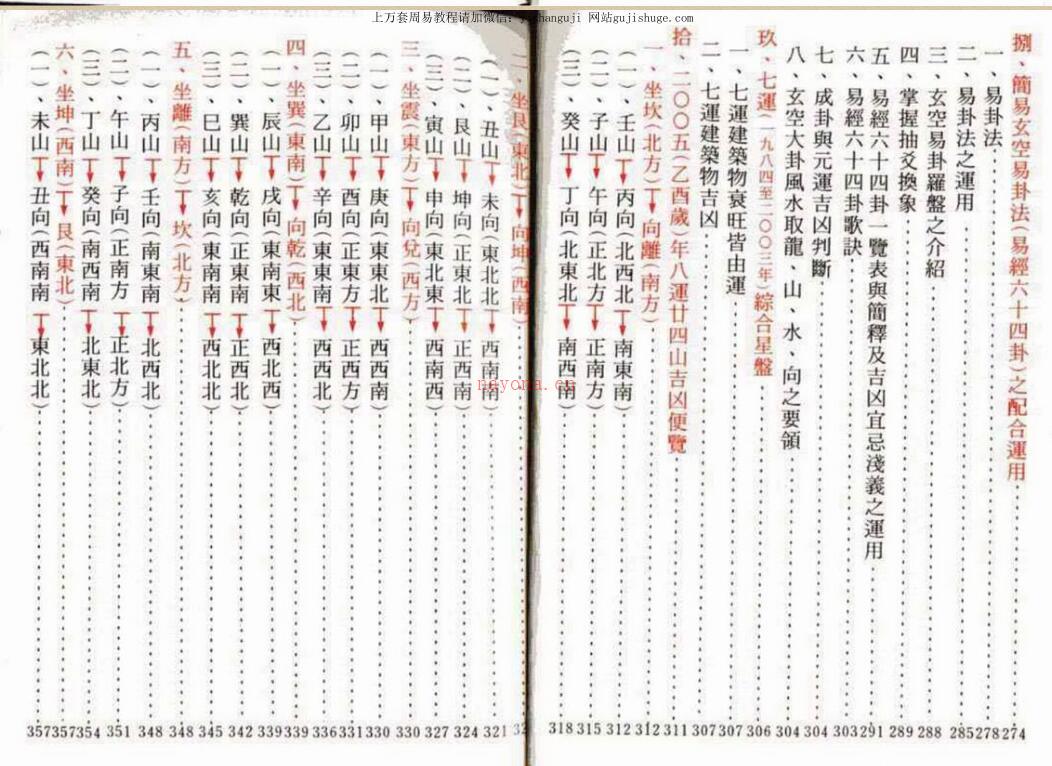 上万套周易教程请加微信：
网站gujishuge.com
捌、簡易玄空易卦法（易經六十四卦）之配合運用 274
一、易卦法 278
二、易卦法之運用 285
三、玄空易卦羅盤之介紹 288
四、掌握抽爻換象 289
五、易經六十四卦一覽表與簡釋及吉凶宜忌淺義之運用 291
六、易經六十四卦歌訣 303
七、成卦與元運吉凶判斷 304
八、玄空大卦風水取龍、山、水、向之要領 304
玖、七運（一九八四至二〇〇三年）綜合星盤 306
一、七運建築物衰旺皆由運 307
二、七運建築物吉凶 307
拾、二〇〇五（乙酉歲）年八運廿四山吉凶便覽 311
一、坐坎（北方）→向離（南方） 312
（一）、壬山→丙向（北西北→南東南） 312
（二）、子山→午向（正北方→正南方） 315
（三）、癸山→丁向（北東北→南西南） 318
二、坐艮（東北）→向坤（西南）
（一）、丑山→未向（東北北→西南南） 321
（二）、艮山→坤向（正東北→正西南） 324
（三）、寅山→申向（東北東→西南西） 327
三、坐震（東方）→向兌（西方） 330
（一）、甲山→庚向（東東北→西西南） 330
（二）、卯山→酉向（正東方→正西方） 331
（三）、乙山→辛向（東東南→西西北） 336
四、坐巽（東南）→向乾（西北） 339
（一）、辰山→戌向（東南東→西北西） 339
（二）、巽山→乾向（正東南→正西北） 342
（三）、巳山→亥向（東南南→西北北） 345
五、坐離（南方）→坎（北方） 348
（一）、丙山→壬向（南東南→北西北） 348
（二）、午山→子向（正南方→正北方） 351
（三）、丁山→癸向（南西南→北東北） 354
六、坐坤（西南）→艮（東北） 357
（一）、未山→丑向（西南南→東北北） 357
nayona.cn